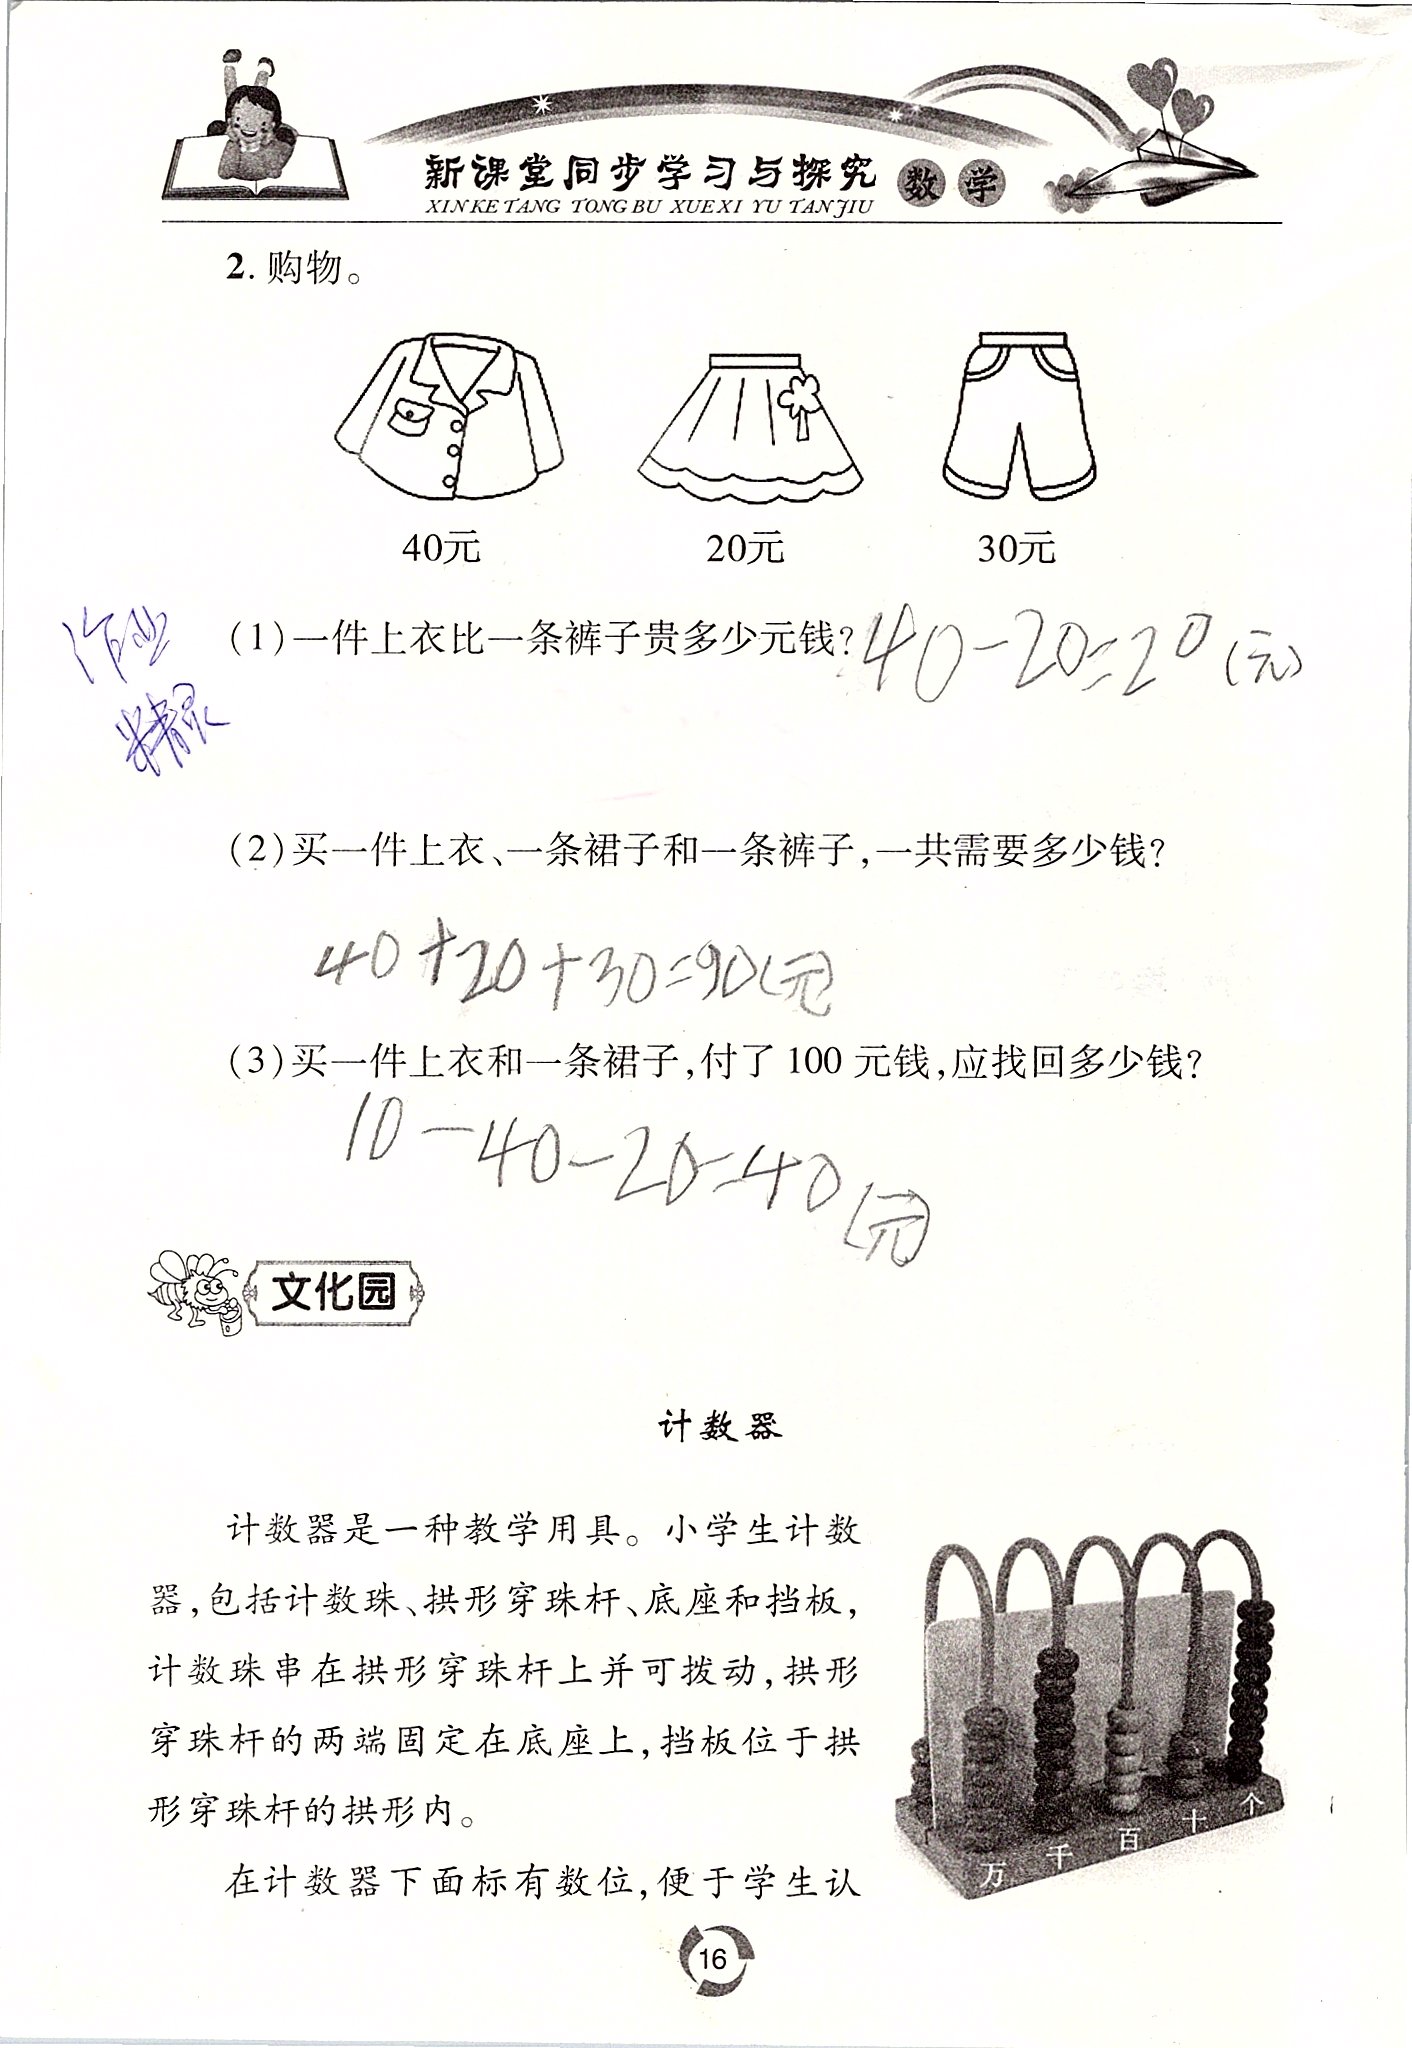 新课堂同步学习与探究 数学
XINKETANG TONGBU XUEXI YU TANJIU
2. 购物。
40元 20元 30元
(1)一件上衣比一条裤子贵多少元钱? 40-20=20(元)
作业
精灵
(2)买一件上衣、一条裙子和一条裤子,一共需要多少钱?
40+20+30=90(元)
(3)买一件上衣和一条裙子,付了 100 元钱,应找回多少钱?
10-40-20=40(元)
文化园
计数器
计数器是一种教学用具。小学生计数
器,包括计数珠、拱形穿珠杆、底座和挡板,
计数珠串在拱形穿珠杆上并可拨动,拱形
穿珠杆的两端固定在底座上,挡板位于拱
形穿珠杆的拱形内。
万 千 百 十 个
在计数器下面标有数位,便于学生认
16